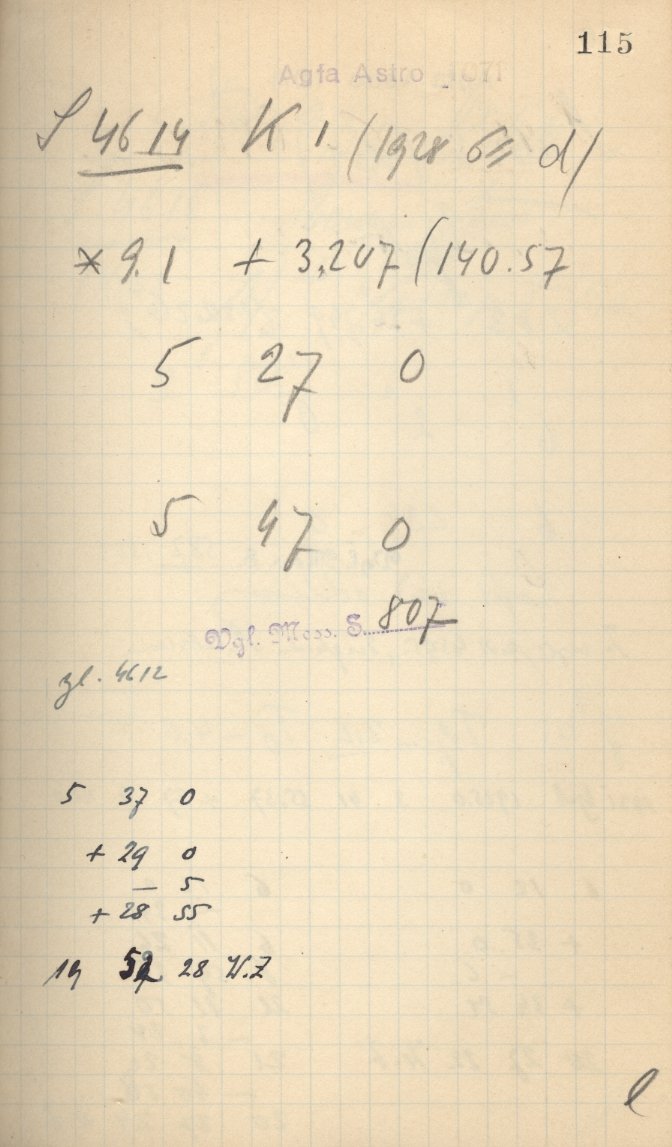 115
Agfa Astro 1071
S 4614 K 1 (1928 d)
* 9.1 + 3,247 (140.57
5 27 0
5 47 0
Vgl. Mess. S. 807
gl. 4612
5 37 0
+ 29 0
— 5
+ 28 55
19 28 W.Z
l